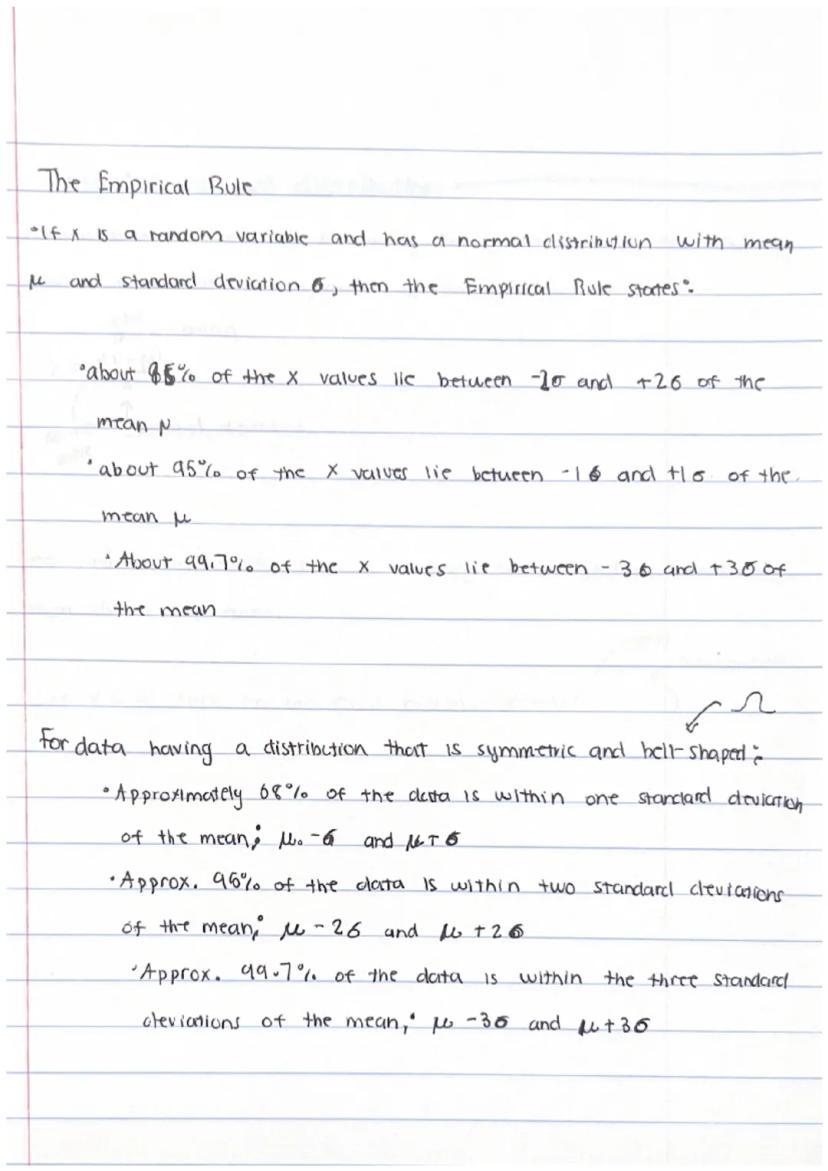 The Empirical Rule
•If x is a random variable and has a normal distribution with mean
μ and standard deviation σ, then the Empirical Rule states:
•about % of the X values lie between -2σ and +2σ of the
mean μ
•about 95% of the X values lie between -1σ and +1σ of the
mean μ
•About 99.7% of the X values lie between -3σ and +3σ of
the mean
For data having a distribution that is symmetric and bell-shaped:
•Approximately 68% of the data is within one standard deviation
of the mean; μ -σ and μ+σ
•Approx. 95% of the data is within two standard deviations
of the mean; μ -2σ and μ +2σ
•Approx. 99.7% of the data is within the three standard
deviations of the mean; μ -3σ and μ+3σ